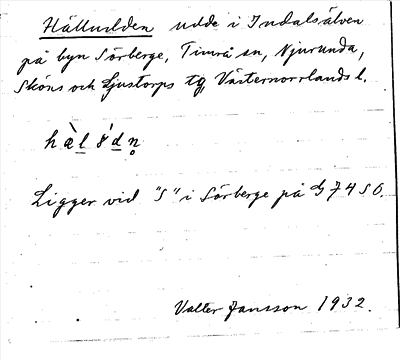 Hälludden udde i Indalsälven
på byn Sörberge, Timrå sn, Njurunda,
Sköns och Ljustorps tg, Västernorrlands l.
Ligger vid "S" i Sörberge på G 74 SO.
Valter Jansson 1932.